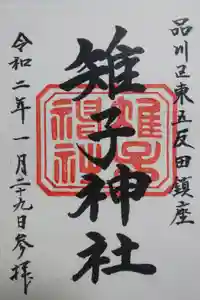 品川区東五反田鎮座
雉子神社
令和二年一月二十九日参拝